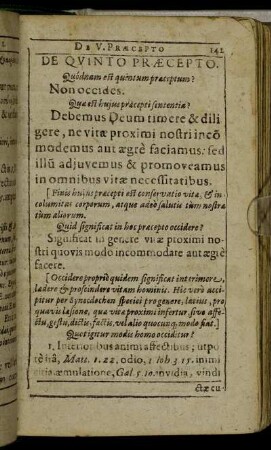 DE V. PRÆCEPTO 141
DE QVINTO PRÆCEPTO.
Quodnam est quintum præceptum?
Non occides.
Quæ est hujus præcepti sententia?
Debemus Deum timere & dili
gere, ne vitæ proximi nostri incõ
modemus aut ægrè faciamus: sed
illũ adjuvemus & promoveamus
in omnibus vitæ necessitatibus.
[ Finis hujus præcepti est conservatio vitæ, & in
columitas corporum, atque adeò salutis tùm nostræ
tùm aliorum.
Quid significat in hoc præcepto occidere?
Significat in genere vitæ proximi no
stri quovis modo incommodare aut ægrè
facere.
[ Occidere propriè quidem significat interimere,
lædere & proscindere vitam hominis. Hîc verò acci
pitur per synecdochen speciei pro genere, latius, pro
quavis læsione, quæ vitæ proximi infertur, sive affe
ctu, gestu, dictis, factis, vel alio quocunq; modo fiat.]
Quot igitur modis homo occiditur?
1. Interioribus animi affectibus; utpo
te irâ, Matt. 5. 22. odio, 1 Joh. 3. 15. inimi
citiâ, æmulatione, Gal. 5. 20. invidia, vindi
ctæ cu-